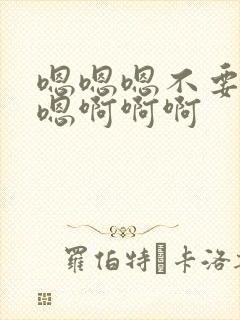 嗯嗯嗯不要
嗯啊啊啊
羅伯特�卡洛